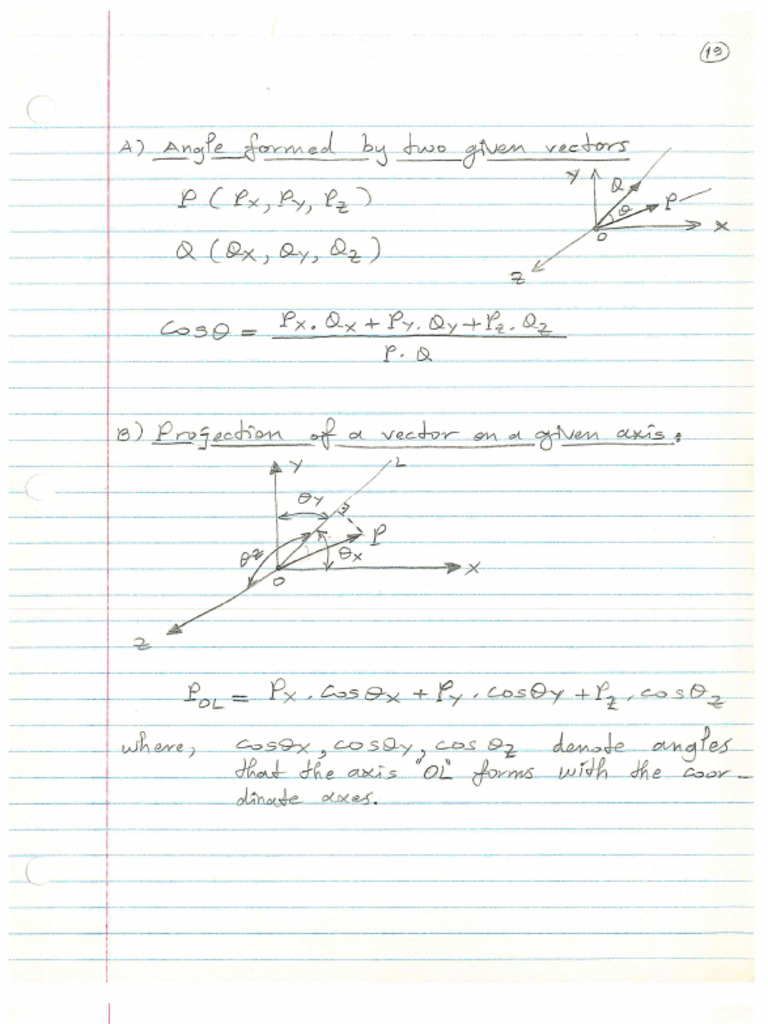 19
A) Angle formed by two given vectors
P ( Px, Py, Pz )
Q ( Qx, Qy, Qz )
Y
Q
θ
P
X
O
Z
Cosθ = Px . Qx + Py . Qy + Pz . Qz
P . Q
B) Projection of a vector on a given axis:
Y
L
θy
P
θz
θx
O
X
Z
POL = Px . Cosθx + Py . cosθy + Pz . cosθz
where, cosθx, cosθy, cosθz denote angles
that the axis "OL" forms with the coor-
dinate axes.